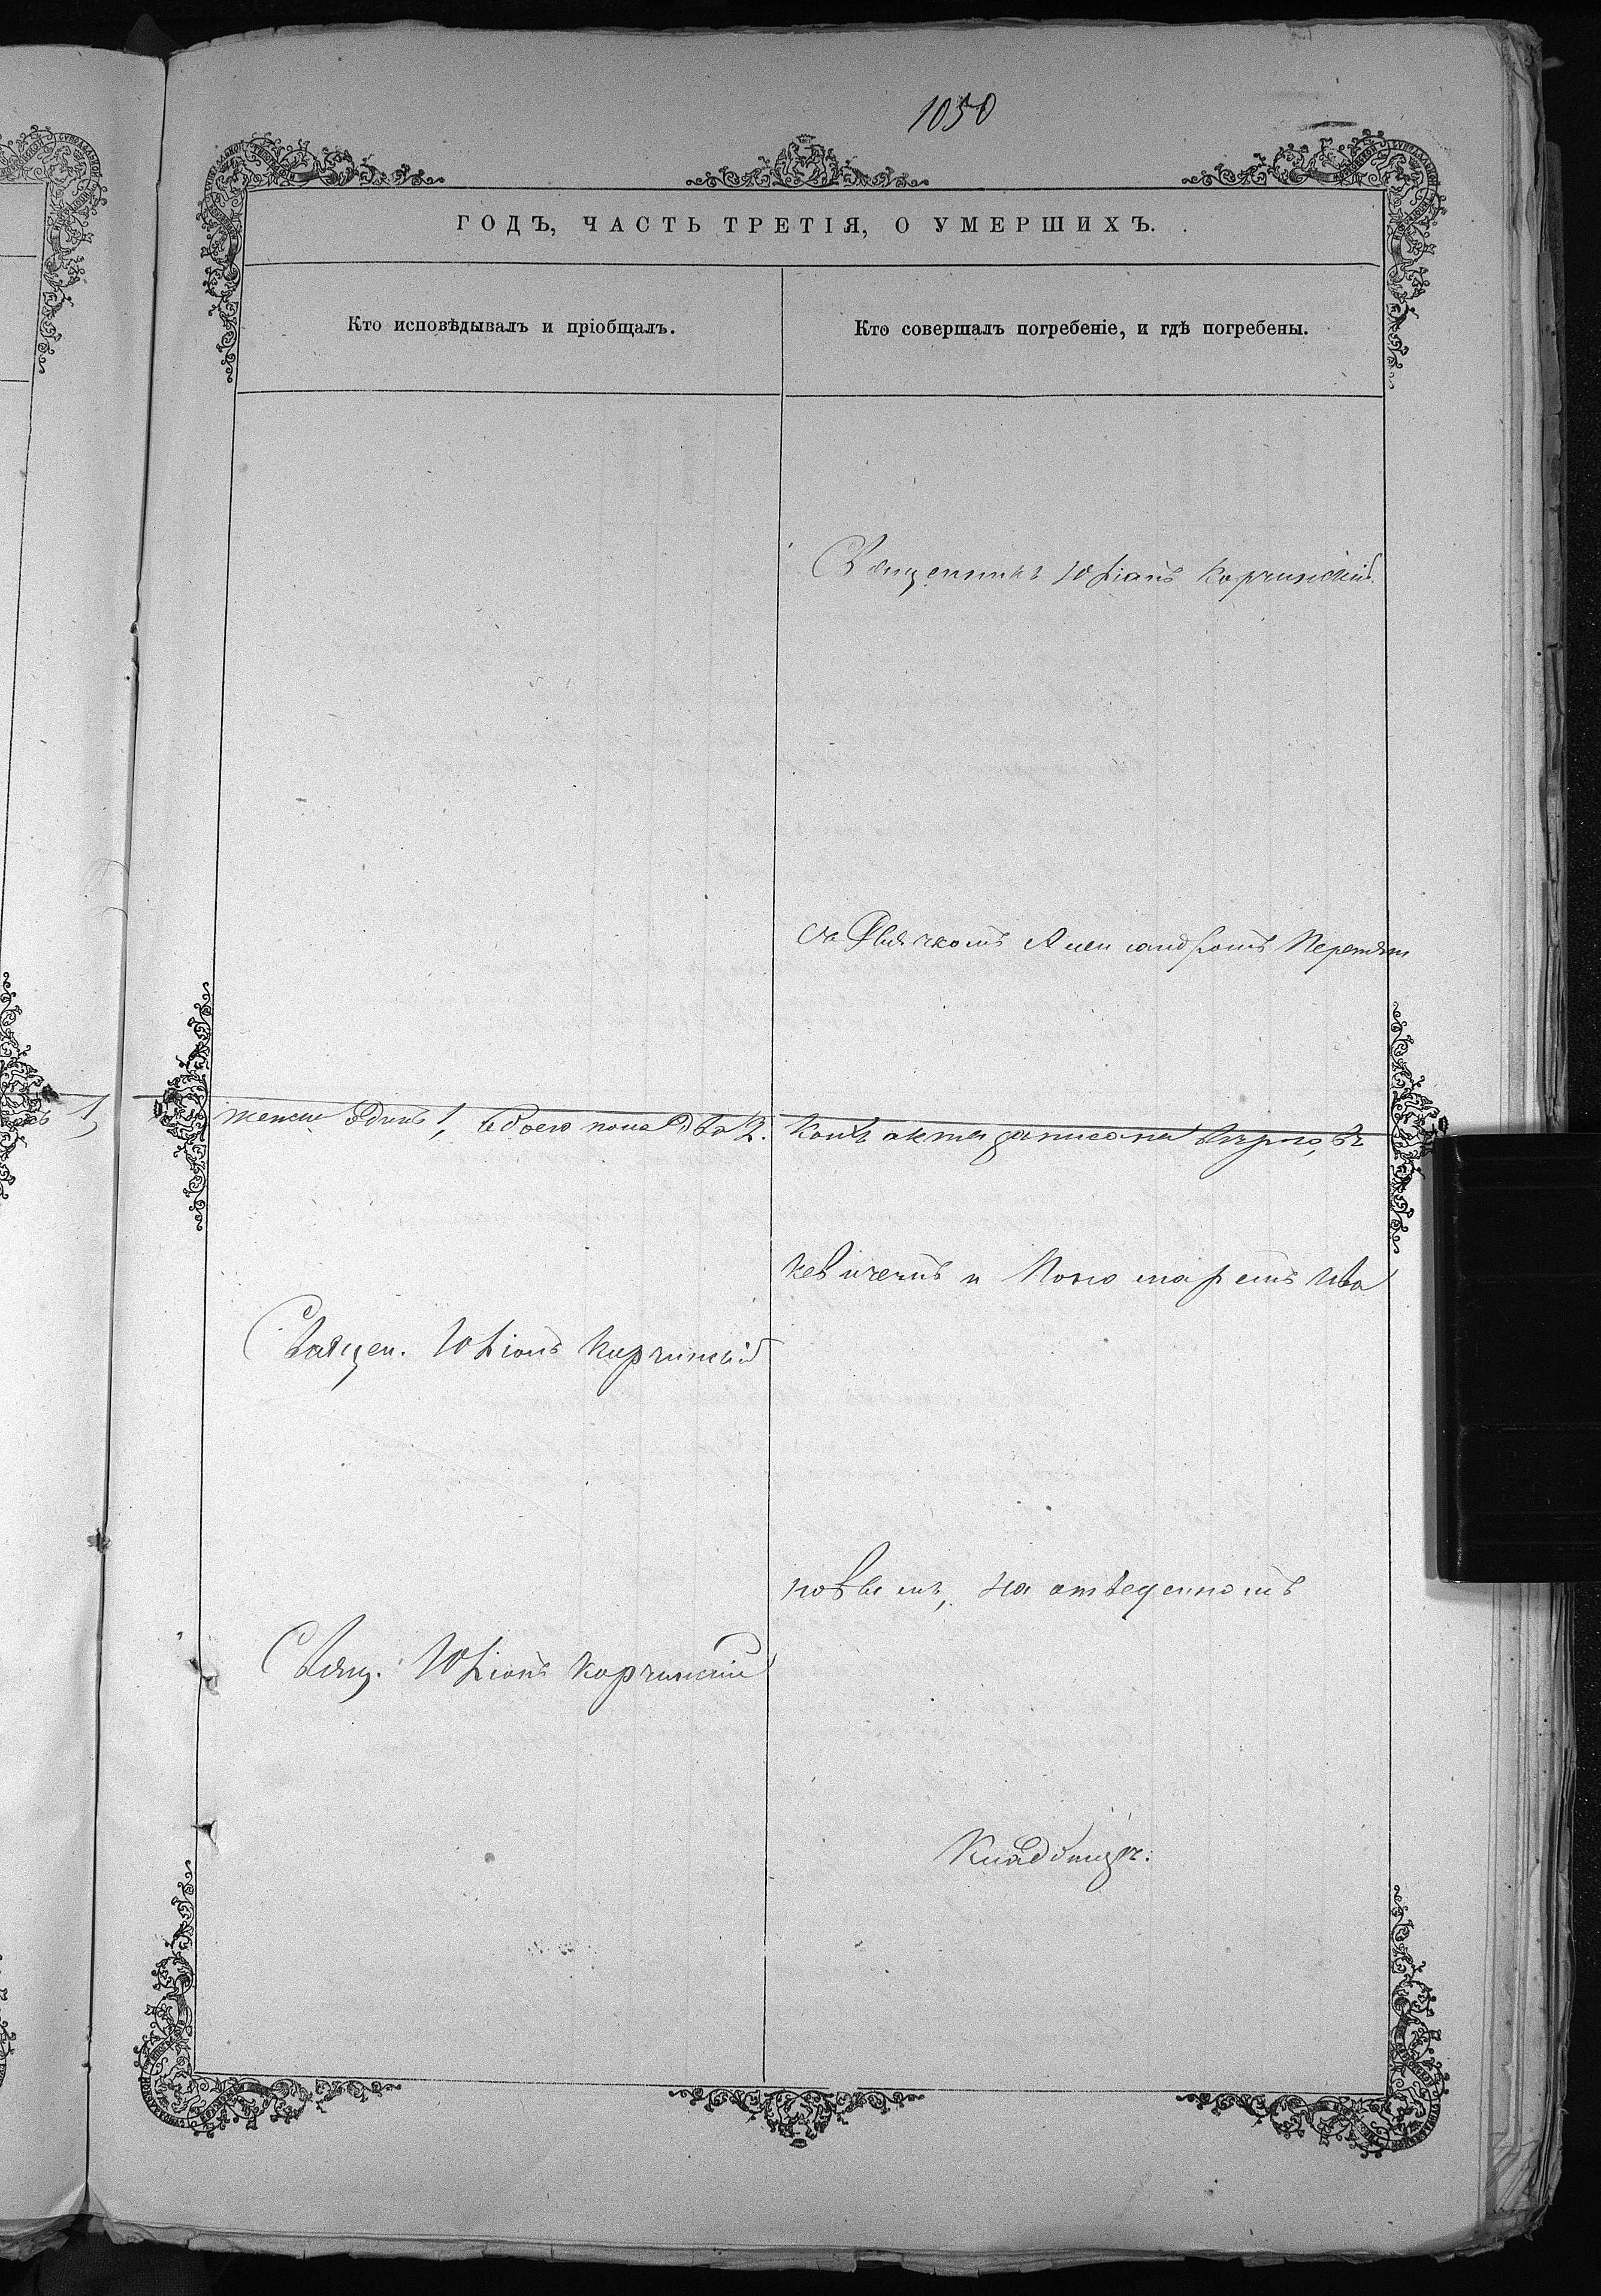 1050
ГОДЪ, ЧАСТЬ ТРЕТІЯ, О УМЕРШИХЪ.
Кто исповѣдывалъ и пріобщалъ.
Кто совершалъ погребеніе, и гдѣ погребены.
Священникъ Юліанъ Корчинскій
съ Дьячкомъ Александромъ Перетят
1,
женск. Одинъ 1, обоего пола Два 2.
Коихъ акта записана вѣрно, въ
кевичемъ и Поно маремъ Ива
Священ. Юліанъ Корчинскій
новымъ, на отведенномъ
Свящ. Юліанъ Корчинскій
Кладбищѣ.